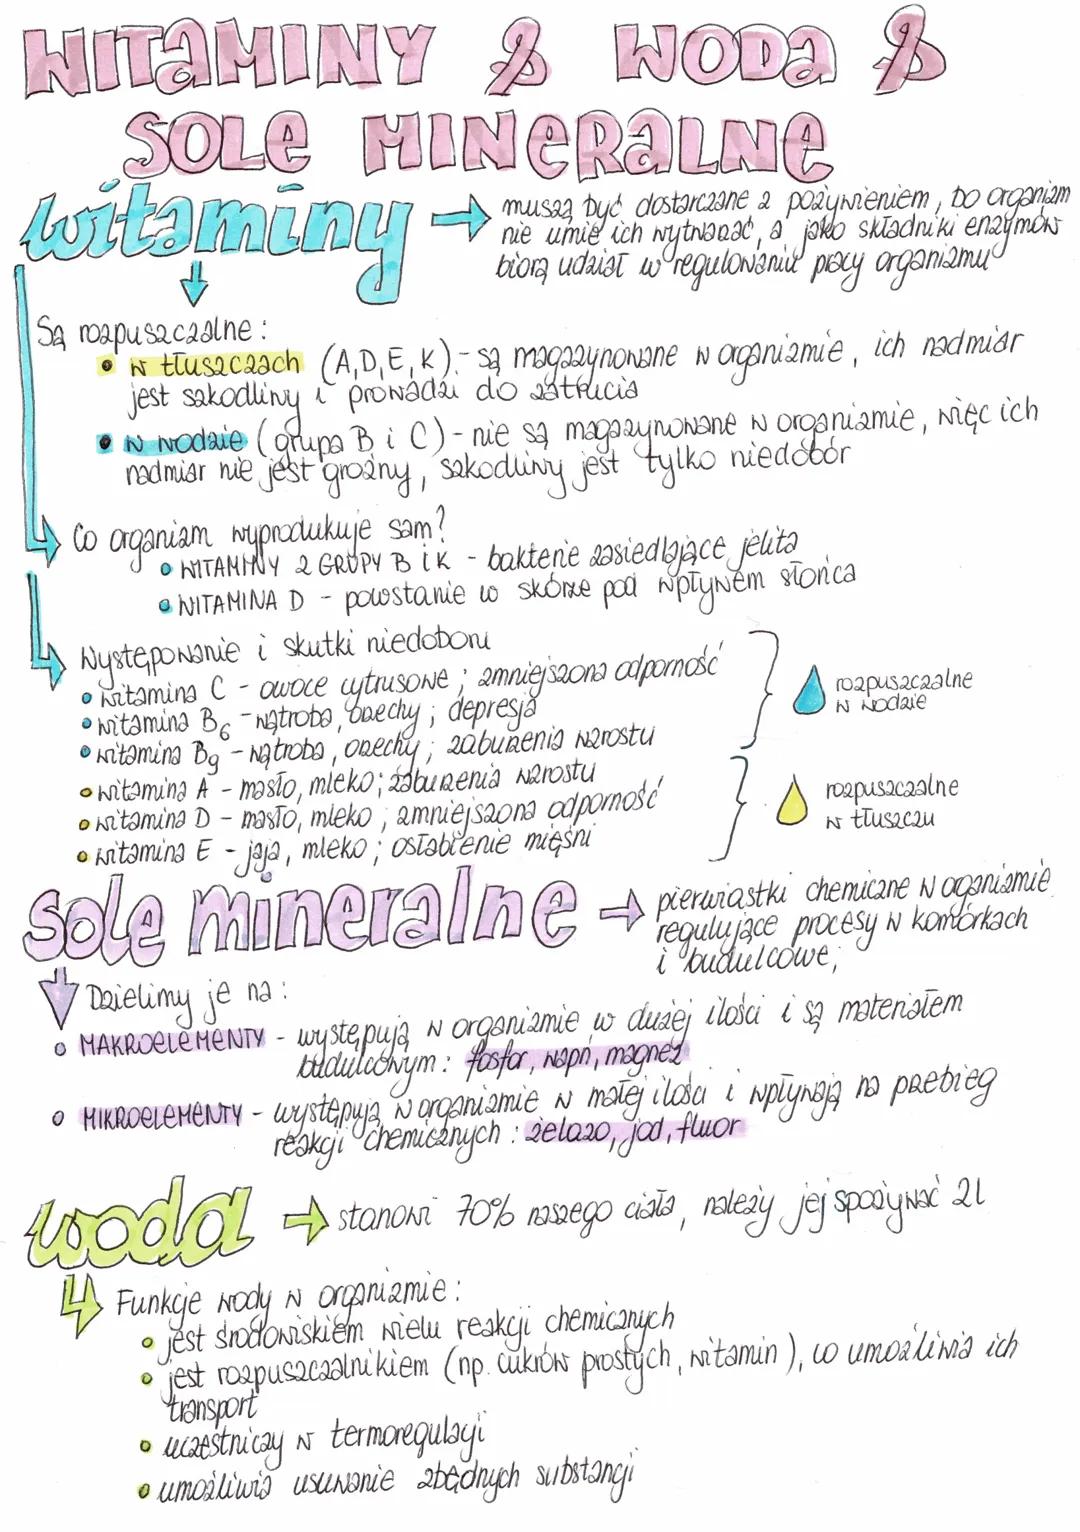 WITAMINY & WODA &
SOLE MINERALNE
witaminy → muszą być dostarczane z pożywieniem, bo organizm
nie umie ich wytwarzać, a jako składniki enzymów
biorą udział w regulowaniu pracy organizmu
Są rozpuszczalne:
• w tłuszczach (A,D,E,K) - są magazynowane w organizmie, ich nadmiar
jest szkodliwy i prowadzi do zatrucia
• w wodzie (grupa B i C) - nie są magazynowane w organizmie, więc ich
nadmiar nie jest groźny, szkodliwy jest tylko niedobór
Co organizm wyprodukuje sam?
• WITAMINY Z GRUPY B i K - bakterie zasiedlające jelita
• WITAMINA D - powstanie w skórze pod wpływem słońca
Występowanie i skutki niedoboru
• witamina C - owoce cytrusowe; zmniejszona odporność
• witamina B6 - wątroba, orzechy; depresja
• witamina B9 - wątroba, orzechy; zaburzenia wzrostu
rozpuszczalne
w wodzie
• witamina A - masło, mleko; zaburzenia wzrostu
• witamina D - masło, mleko; zmniejszona odporność
• witamina E - jaja, mleko; osłabienie mięśni
rozpuszczalne
w tłuszczu
sole mineralne → pierwiastki chemiczne w organizmie
regulujące procesy w komórkach
i budulcowe;
Dzielimy je na:
• MAKROELEMENTY - występują w organizmie w dużej ilości i są materiałem
budulcowym: fosfor, wapń, magnez
• MIKROELEMENTY - występują w organizmie w małej ilości i wpływają na przebieg
reakcji chemicznych: żelazo, jod, fluor
woda → stanowi 70% naszego ciała, należy jej spożywać 2l
Funkcje wody w organizmie:
• jest środowiskiem wielu reakcji chemicznych
• jest rozpuszczalnikiem (np. cukrów prostych, witamin), co umożliwia ich
transport
• uczestniczy w termoregulacji
• umożliwia usuwanie zbędnych substancji